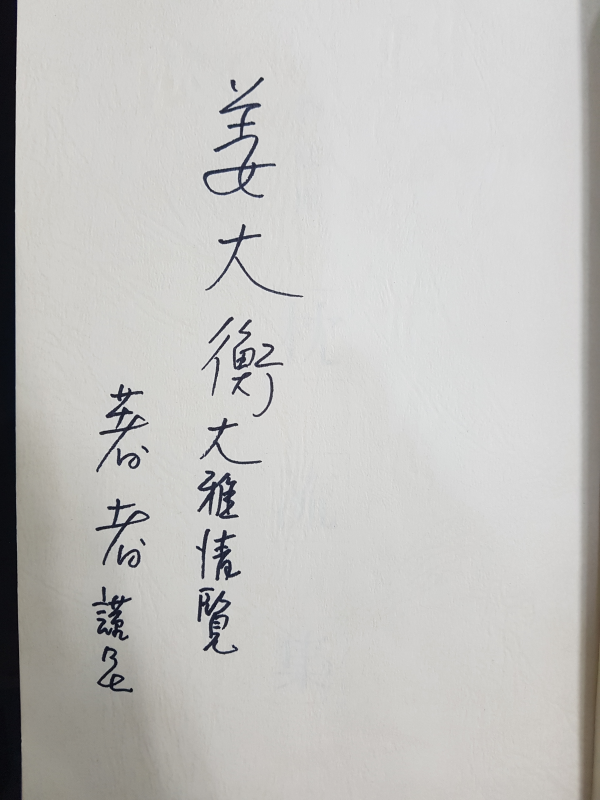 姜大衡大雅情覽
著者謹呈